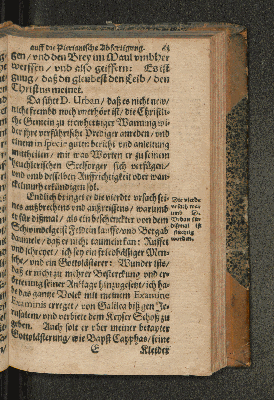 auff die Pierianische Abfertigung.
gen / vnd den Brey im Maul vmbher
werffen / vnd also geiffern: Es ist
gnug / daß du glaubest den Leib / den
Christus meinet.
Da sihet D. Urban / daß es nicht new /
nicht frembd noch vnerhört ist / die Christli-
che Gemein zu trewhertziger Warnung wi-
der ihre verführische Prediger anreden / vnd
einem in specie guten bericht vnd anleitung
mittheilen / mit was Worten er zu seinem
Seelsorger sich verfügen /
vnd vmb desselben Auffrichtigkeit oder wan-
ckelmuth erkündigen sol.
Endlich bringet er die vierdte vrsach sei-
nes außbrechens vnd außreissens / warumb
er für dißmal / als ein beschenckter von dem
Schwindelgeist Feldein lauffe vnd Bergab
daumele / daß er nicht raumen kan: Ruffet
vnd schreyet / ich sey ein friedhässiger Men-
sche / vnd ein Gottslästerer: Wunder ists /
daß er nicht zu mehrer Bekleckung vnd er-
örterung seiner Anklage hinzugesetzt / ich ha-
be das gantze Volck mit meinem Examine
Examinis erreget / von Galilea biß gen Je-
rusalem / vnd verbiete dem Keyser Schoß zu
geben. Auch solt er vber meiner betapter
Gottslästerung / wie Bapst Cayphas / seine
E
Kleider
Die vierde
vrsach wa-
rumb D.
Urban für
dißmal ist
worden.